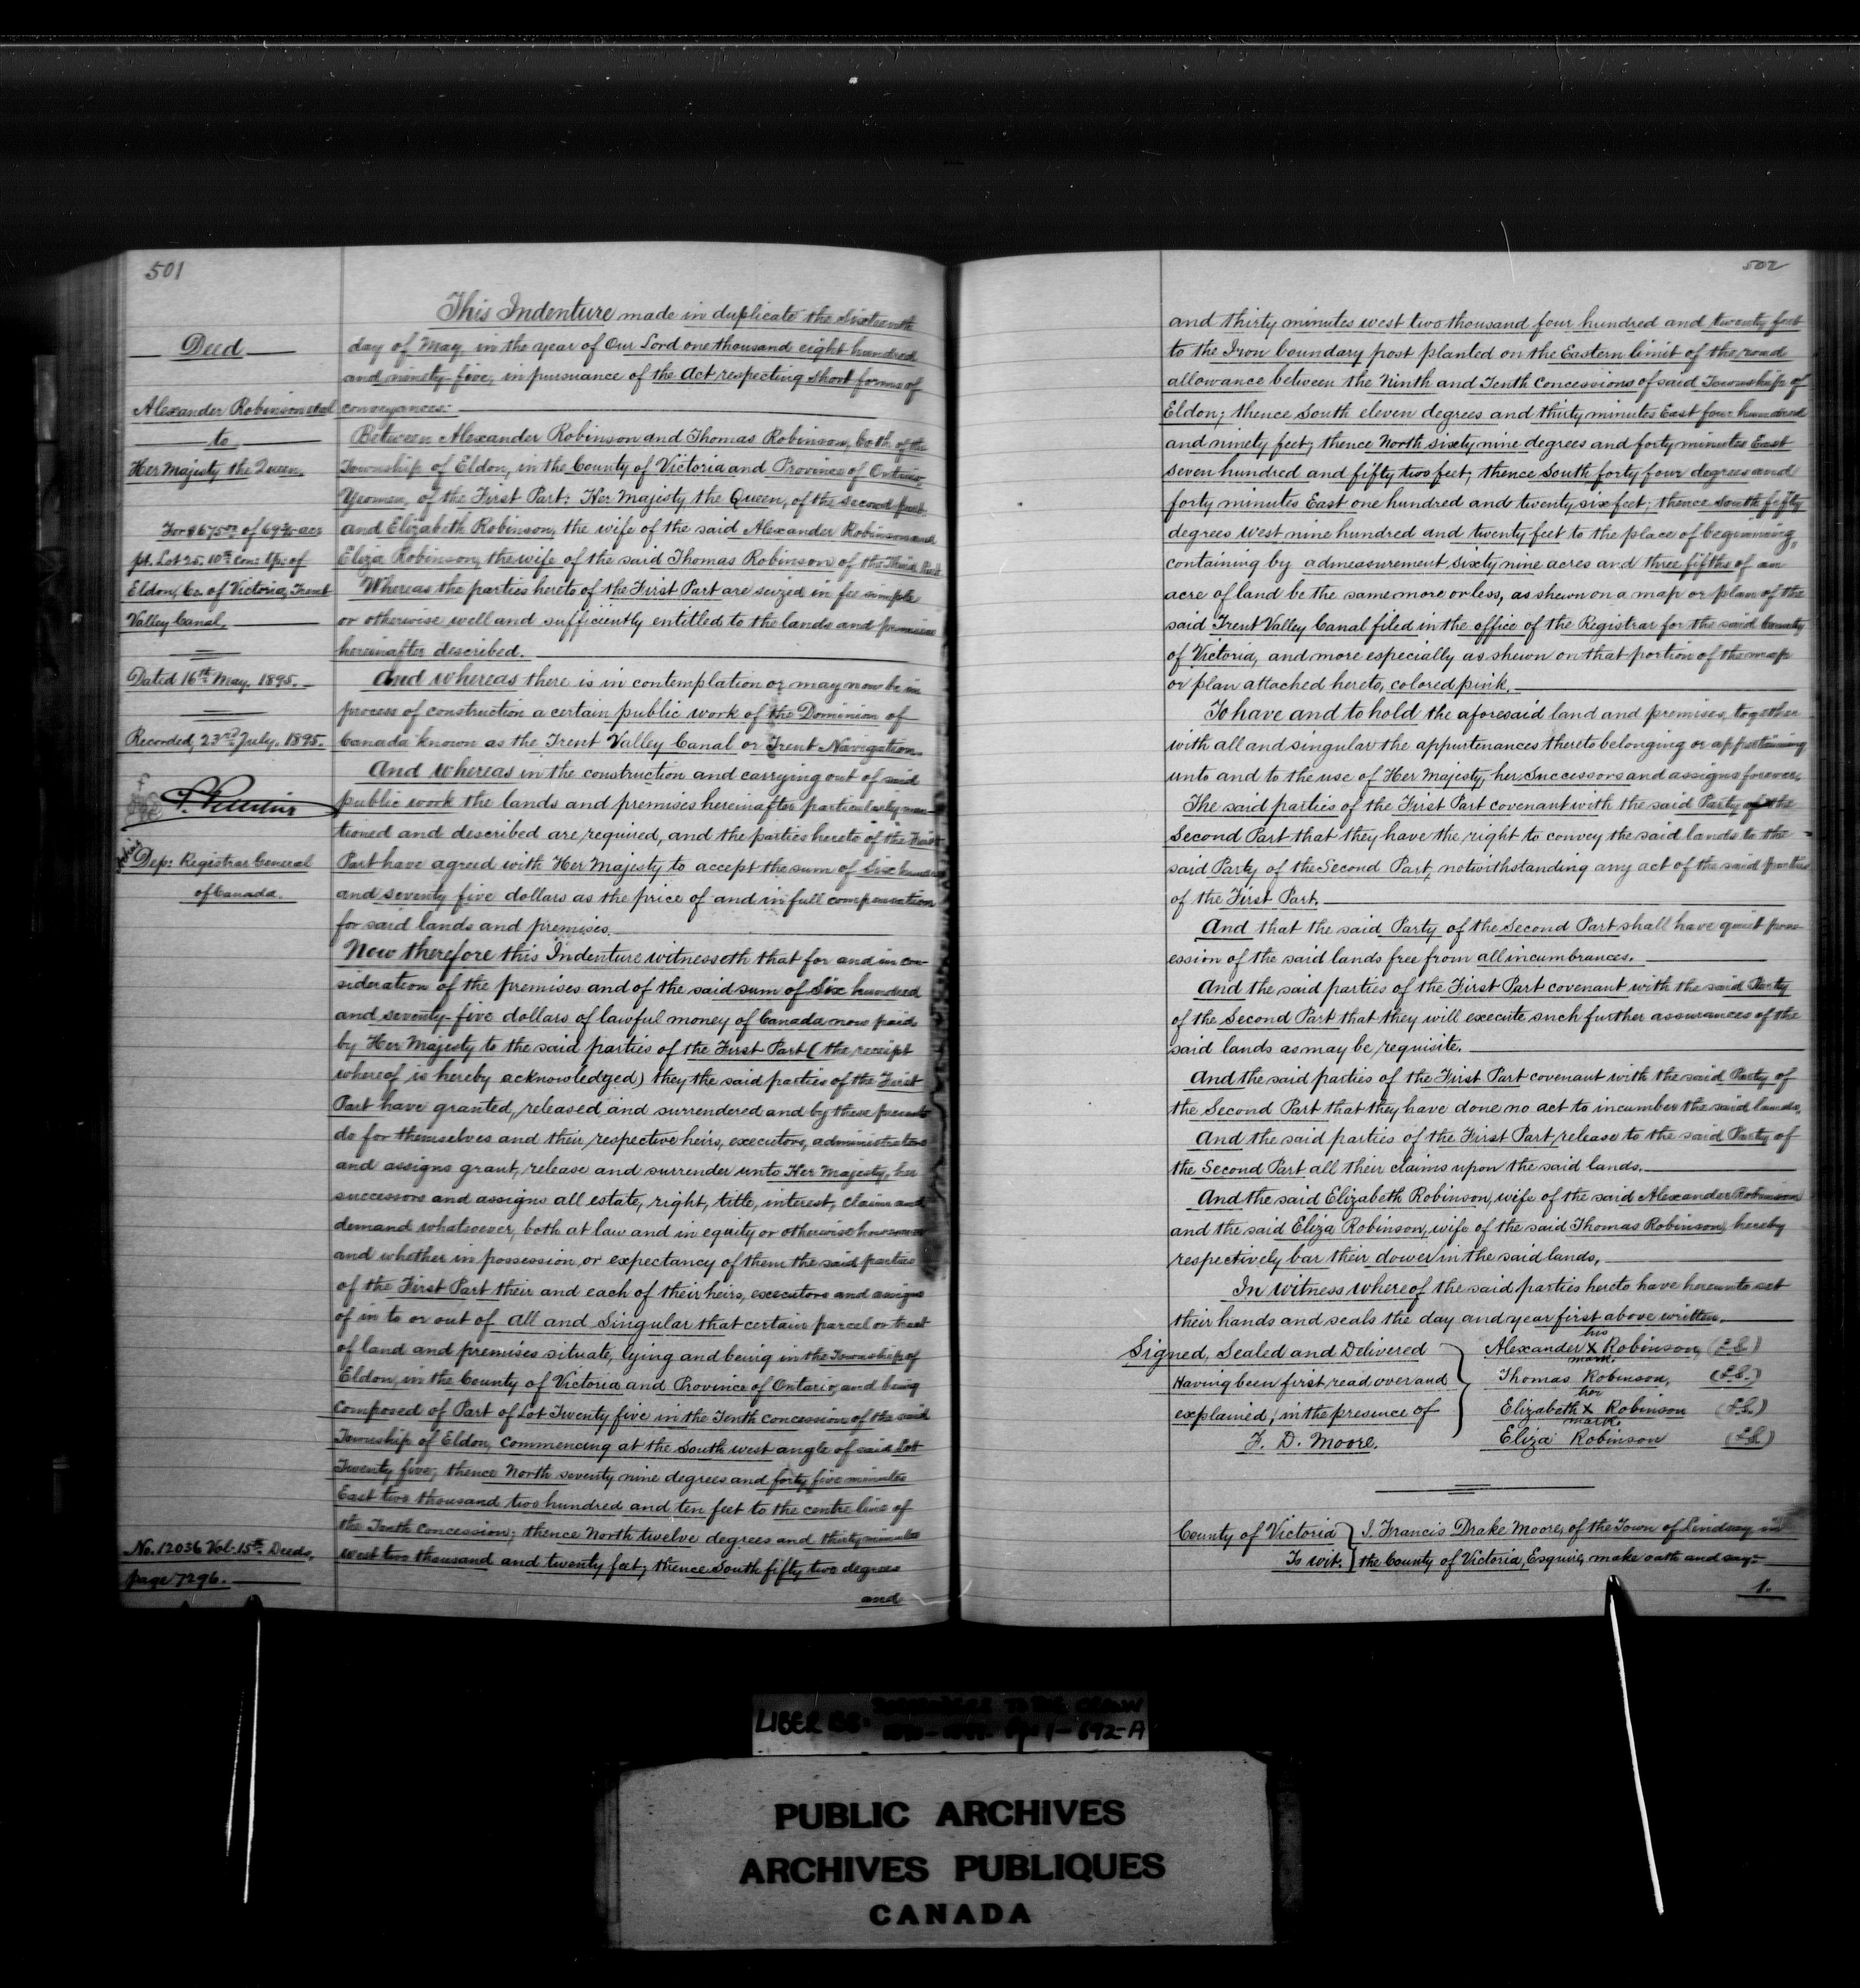 501
Deed
Alexander Robinson et al
to
Her Majesty the Queen.
For $675.00 of 69 3/5 acs
pt. Lot 25. 10th Con: Tp: of
Eldon, Co. of Victoria, Trent
Valley Canal.
Dated 16th May. 1895.
Recorded, 23rd July. 1895.
Dep: Registrar General
of Canada.
No. 12036 Vol. 15th Deeds,
page 7296.
This Indenture made in duplicate the Sixteenth
day of May in the year of Our Lord one thousand eight hundred
and ninety-five, in pursuance of the Act respecting Short forms of
conveyances:
Between Alexander Robinson and Thomas Robinson, both of the
Township of Eldon, in the County of Victoria and Province of Ontario
Yeomen, of the First Part: Her Majesty the Queen, of the second part
and Elizabeth Robinson, the wife of the said Alexander Robinson and
Eliza Robinson, the wife of the said Thomas Robinson of the Third Part
Whereas the parties hereto of the First Part are seized in fee simple
or otherwise well and sufficiently entitled to the lands and premises
hereinafter described.
And whereas there is in contemplation or may now be in
process of construction a certain public work of the Dominion of
Canada known as the Trent Valley Canal or Trent Navigation.
And whereas in the construction and carrying out of said
public work the lands and premises hereinafter particularly men-
tioned and described are required, and the parties hereto of the First
Part have agreed with Her Majesty to accept the sum of Six hundred
and seventy five dollars as the price of and in full compensation
for said lands and premises.
Now therefore this Indenture witnesseth that for and in con-
sideration of the premises and of the said sum of Six hundred
and seventy-five dollars of lawful money of Canada now paid
by Her Majesty to the said parties of the First Part (the receipt
whereof is hereby acknowledged) they the said parties of the First
Part have granted, released and surrendered and by these presents
do for themselves and their respective heirs, executors, administrators
and assigns grant, release and surrender unto Her Majesty, her
successors and assigns all estate, right, title, interest, claim and
demand whatsoever, both at law and in equity or otherwise howsoever
and whether in possession or expectancy of them the said parties
of the First Part their and each of their heirs, executors and assigns
of in to or out of all and Singular that certain parcel or tract
of land and premises situate, lying and being in the Township of
Eldon, in the County of Victoria and Province of Ontario, and being
composed of Part of Lot Twenty five in the Tenth concession of the said
Township of Eldon, commencing at the South west angle of said Lot
Twenty five; thence North seventy nine degrees and forty five minutes
East two thousand two hundred and ten feet to the centre line of
the Tenth concession; thence North twelve degrees and thirty minutes
west two thousand and twenty feet; thence South fifty two degrees
and
502
and thirty minutes west two thousand four hundred and twenty feet
to the Iron boundary post planted on the Eastern limit of the road
allowance between the Ninth and Tenth concessions of said Township of
Eldon; thence South eleven degrees and thirty minutes East four hundred
and ninety feet; thence North sixty nine degrees and forty minutes East
seven hundred and fifty two feet; thence South forty four degrees and
forty minutes East one hundred and twenty six feet; thence South fifty
degrees west nine hundred and twenty feet to the place of beginning,
containing by admeasurement sixty nine acres and three fifths of an
acre of land be the same more or less, as shewn on a map or plan of the
said Trent Valley Canal filed in the office of the Registrar for the said County
of Victoria, and more especially as shewn on that portion of the map
or plan attached hereto, colored pink.
To have and to hold the aforesaid land and premises, together
with all and singular the appurtenances thereto belonging or appertaining
unto and to the use of Her Majesty, her Successors and assigns forever,
The said parties of the First Part covenant with the said Party of the
Second Part that they have the right to convey the said lands to the
said Party of the Second Part, notwithstanding any act of the said parties
of the First Part.
And that the said Party of the Second Part shall have quiet poss-
ession of the said lands free from all incumbrances.
And the said parties of the First Part covenant with the said Party
of the Second Part that they will execute such further assurances of the
said lands as may be requisite.
And the said parties of the First Part covenant with the said Party of
the Second Part that they have done no act to incumber the said lands,
And the said parties of the First Part release to the said Party of
the Second Part all their claims upon the said lands.
And the said Elizabeth Robinson, wife of the said Alexander Robinson
and the said Eliza Robinson, wife of the said Thomas Robinson, hereby
respectively bar their dower in the said lands.
In witness whereof the said parties hereto have hereunto set
their hands and seals the day and year first above written.
Signed, Sealed and Delivered
Having been first read over and
explained, in the presence of
F. D. Moore.
his
Alexander X Robinson, (L.S.)
mark.
Thomas Robinson, (L.S.)
her
Elizabeth X Robinson (L.S.)
mark.
Eliza Robinson (L.S.)
County of Victoria } I, Francis Drake Moore, of the Town of Lindsay in
To wit. } the County of Victoria, Esquire, make oath and say:-
1.
LIBER
692-A
PUBLIC ARCHIVES
ARCHIVES PUBLIQUES
CANADA